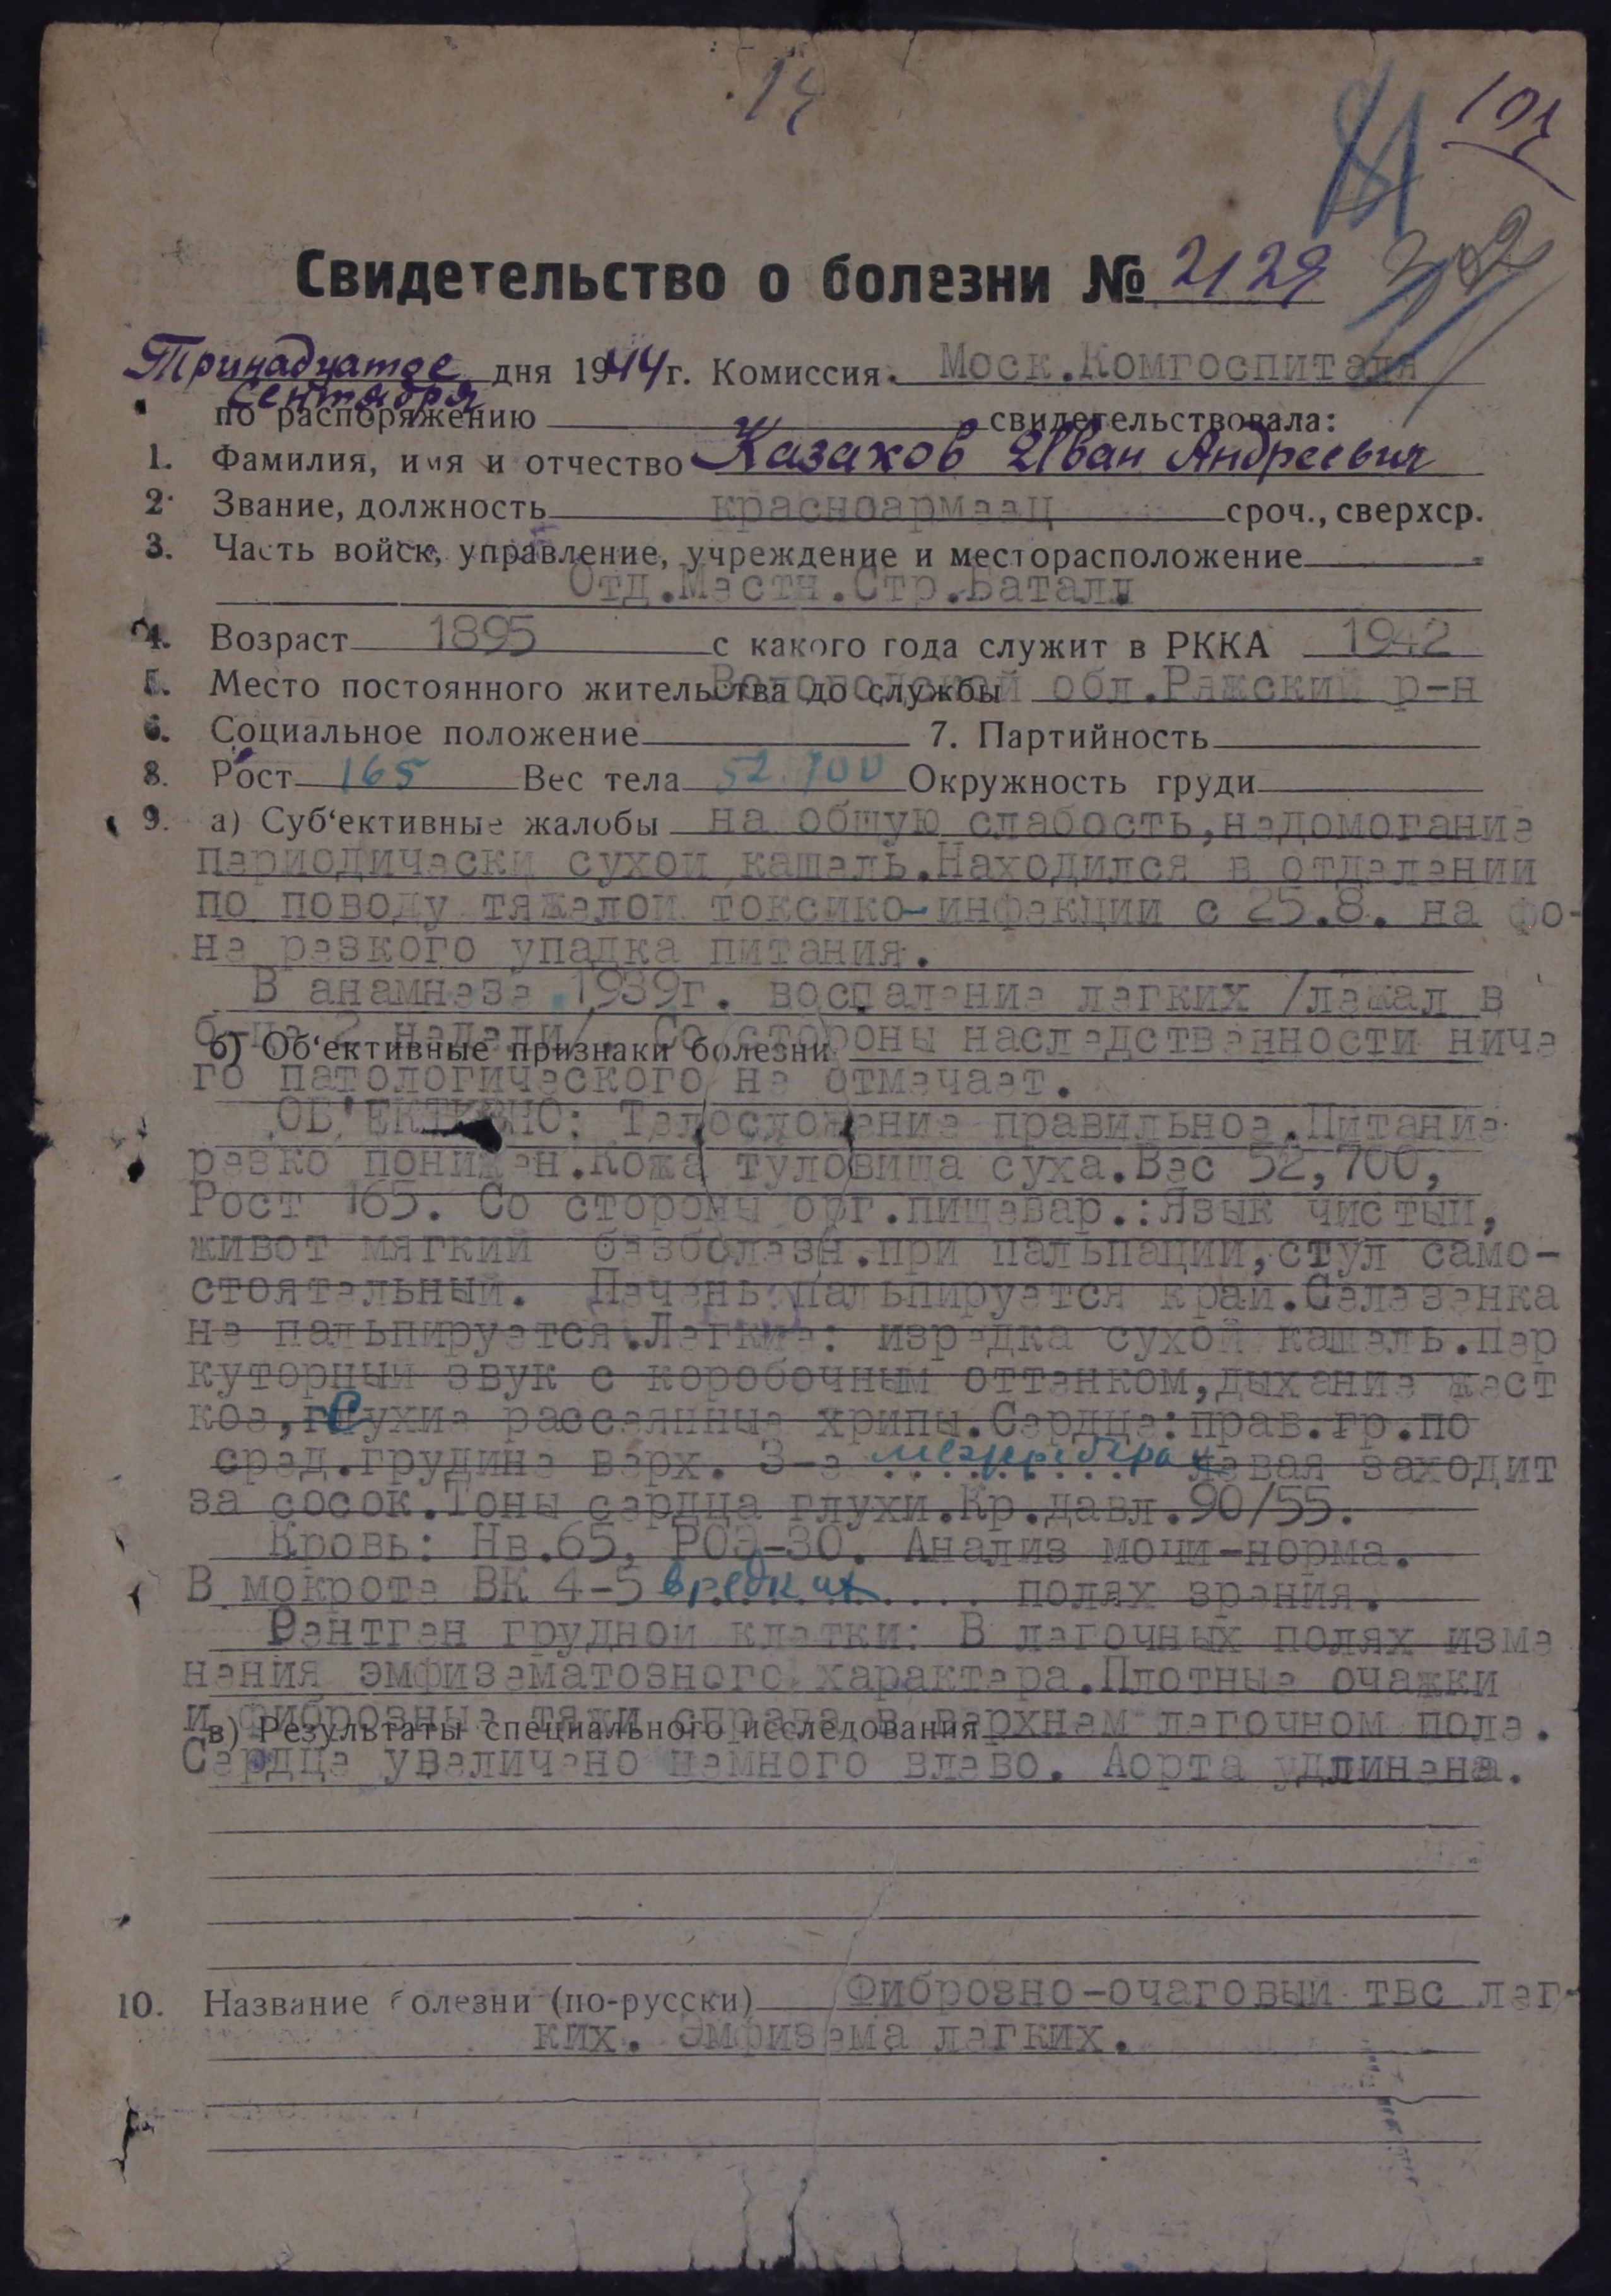 14
101
81
Свидетельство о болезни № 2129
Тринадцатое сентября дня 1944 г. Комиссия Моск.Комгоспиталя
по распоряжению свидетельствовала:
1. Фамилия, имя и отчество Казаков Иван Андреевич
2. Звание, должность красноармеец сроч., сверхср.
3. Часть войск, управление, учреждение и месторасположение
Отд.Местн.Стр.Батал.
4. Возраст 1895 с какого года служит в РККА 1942
5. Место постоянного жительства до службы Вологодской обл.Ряжский р-н
6. Социальное положение 7. Партийность
8. Рост 165 Вес тела 52.700 Окружность груди
9. а) Суб‘ективные жалобы на общую слабость,недомогание
периодически сухой кашель.Находился в отделении
по поводу тяжелой токсико-инфекции с 25.8. на фо-
не резкого упадка питания.
В анамнезе 1939г. воспаление легких /лежал в
б-це 2 недели/. Со стороны наследственности ниче
б) Об‘ективные признаки болезни
го патологического не отмечает.
ОБ'ЕКТИВНО: Телосложение правильное.Питание
резко понижен.Кожа туловища суха.Вес 52,700,
Рост 165. Со стороны орг.пищевар.:Язык чистый,
живот мягкий безболезн.при пальпации,стул само-
стоятельный. Печень пальпируется край.Селезенка
не пальпируется.Легкие: изредка сухой кашель.пер
куторный звук с коробочным оттенком,дыхание жест
кое,гСухие рассеянные хрипы.Сердце:прав.гр.по
сред.грудине верх. 3-е межреберье левая заходит
за сосок.Тоны сердца глухи.Кр.давл.90/55.
Кровь: Нв.65, РОЭ-30. Анализ мочи-норма.
В мокроте ВК 4-5 в редких .... полях зрения.
Рентген грудной клетки: В легочных полях изме
нения эмфизематозного характера.Плотные очажки
и фиброзные тяжи справа в верхнем легочном поле.
в) Результаты специального исследования
Сердце увеличено немного влево. Аорта удлинена.
10. Название болезни (по-русски) Фиброзно-очаговый твс лег-
ких. Эмфизема легких.